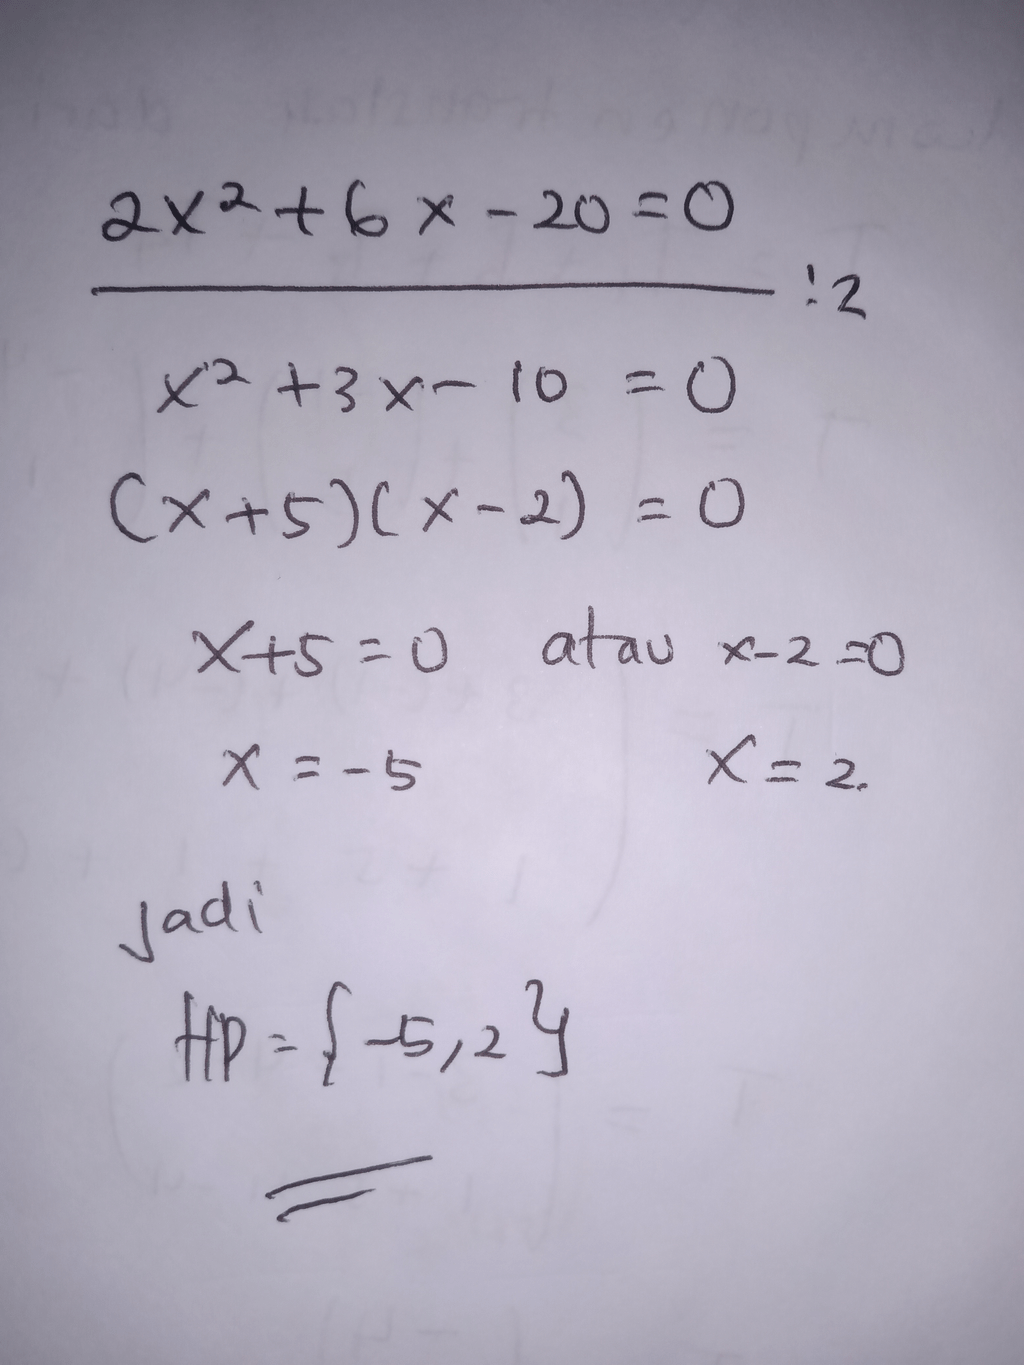 2x²+6x-20=0
:2
x²+3x-10=0
(x+5)(x-2)=0
x+5=0 atau x-2=0
x=-5 x=2.
jadi
HP={-5,2}